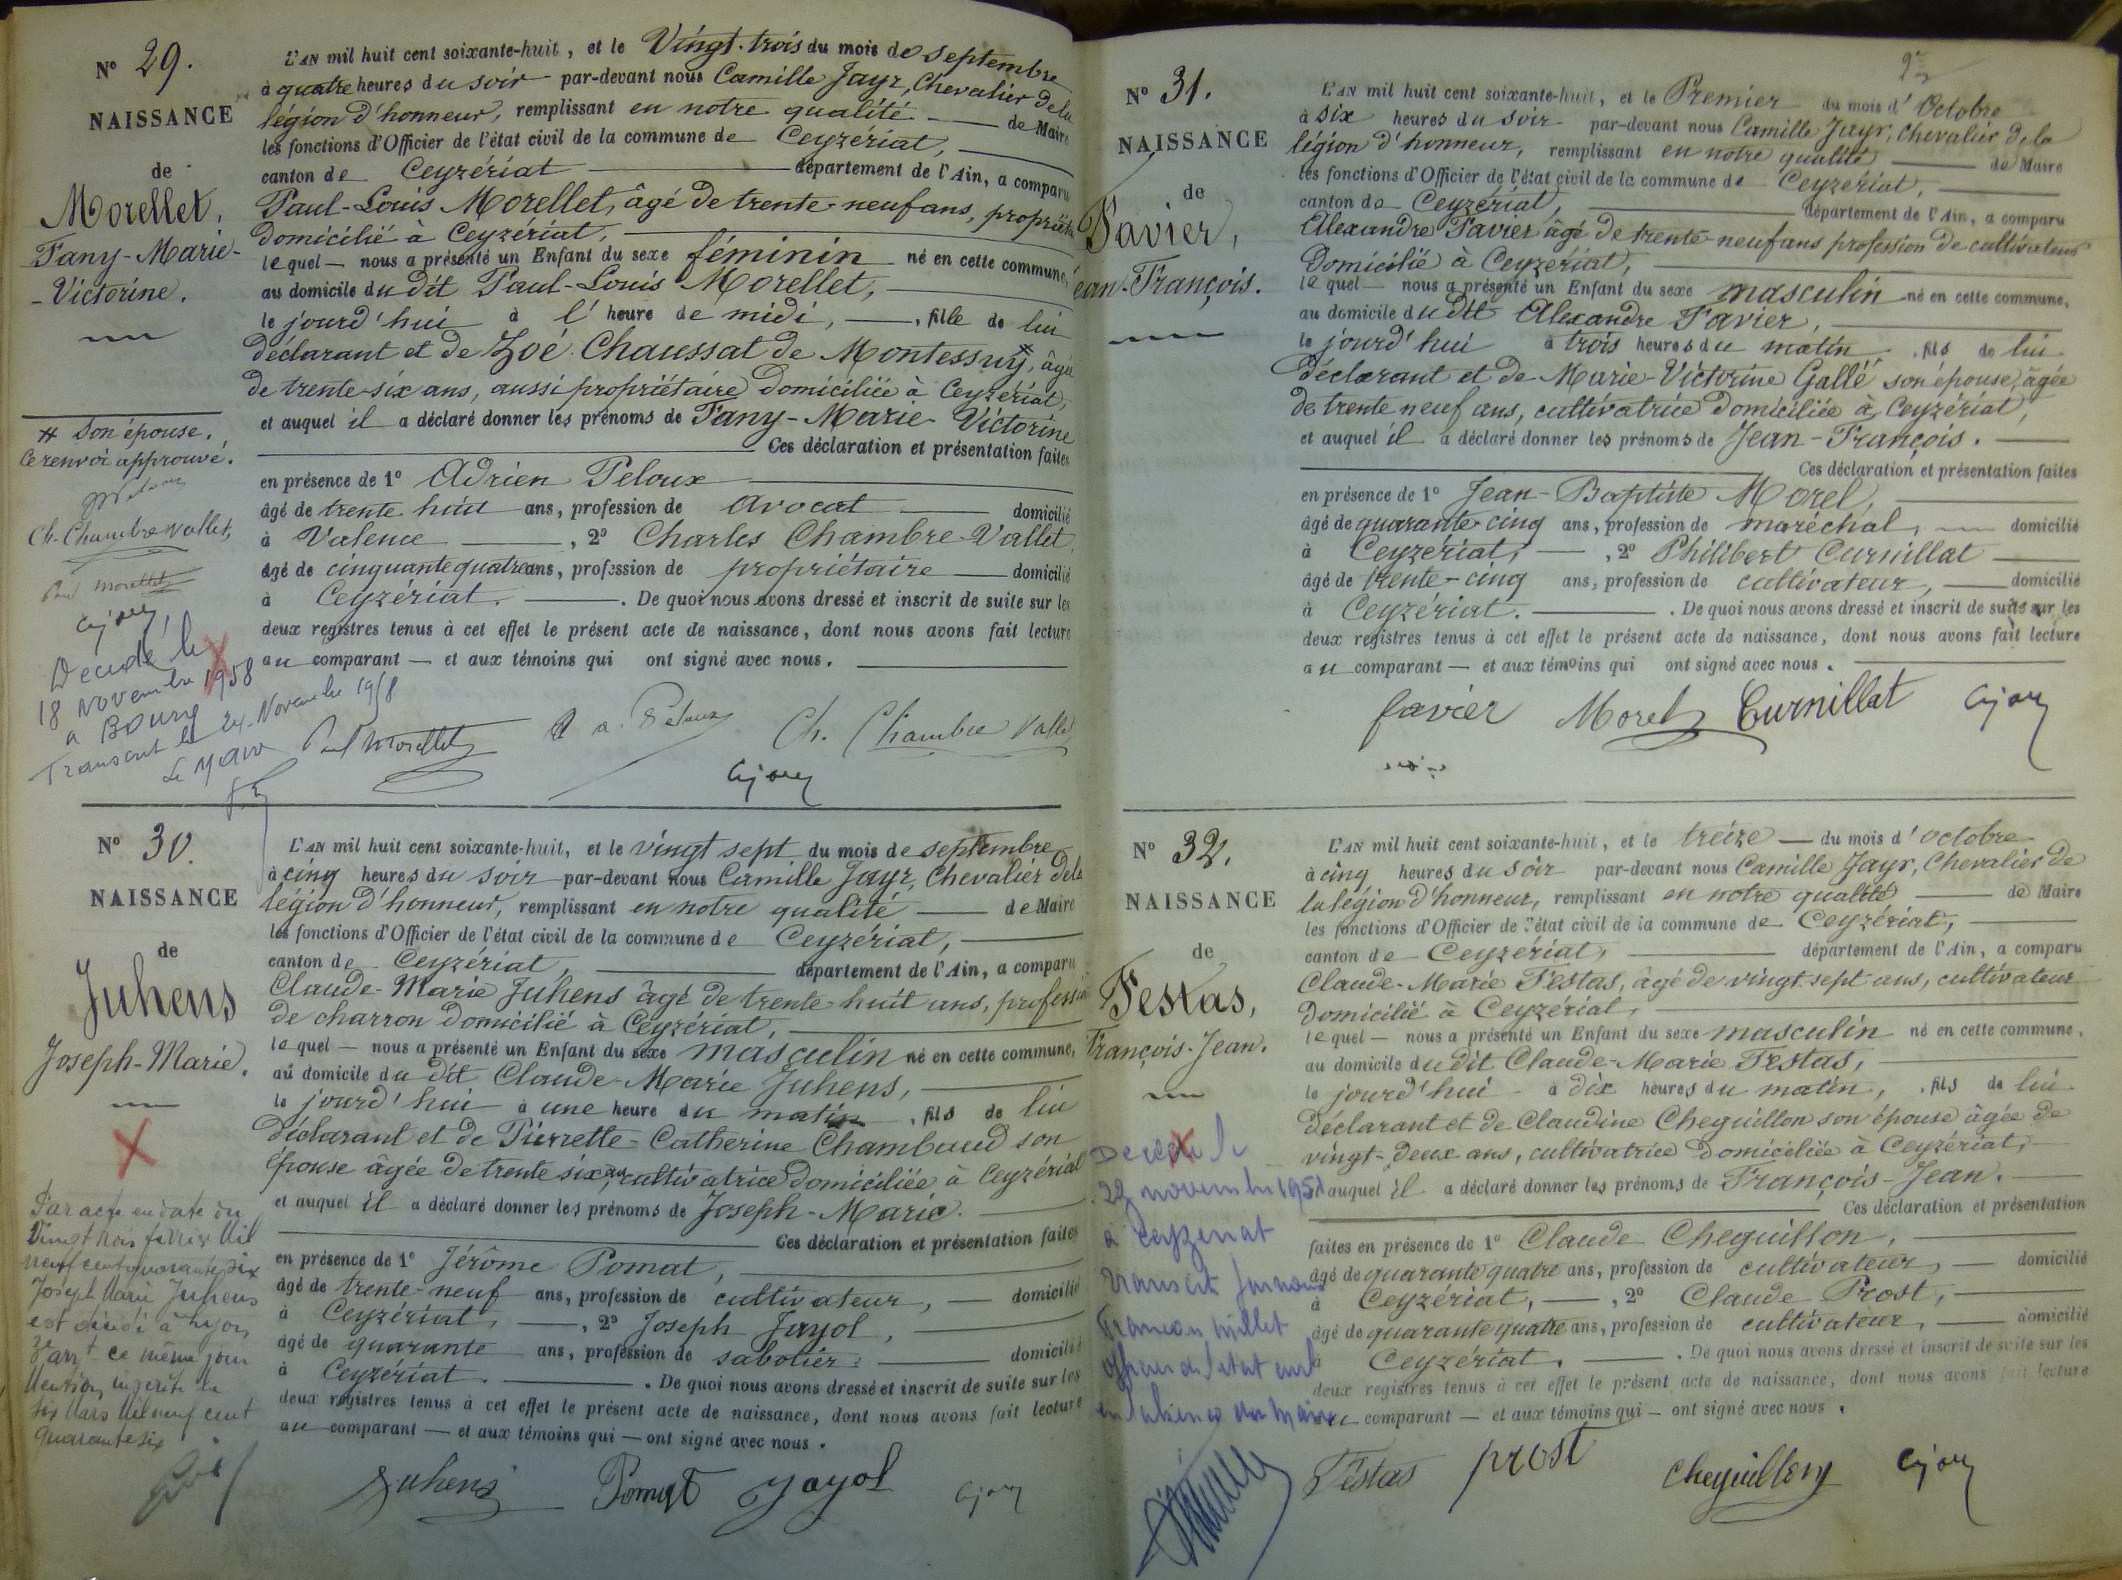 N° 29.
NAISSANCE
de
Morellet,
Fany-Marie-
-Victorine.
# Son épouse.
Ce renvoi approuvé.
Ch. Chambre Vallet,
Paul Morellet
CJayr
Decedé le
18 novembre 1958
a Bourg
Transcrit le 24 Novembre 1958
Le Maire
L'AN mil huit cent soixante-huit, et le Vingt-trois du mois de septembre
à quatre heures du soir par-devant nous Camille Jayr, Chevalier de la
légion d'honneur, remplissant en notre qualité de Maire
les fonctions d'Officier de l'état civil de la commune de Ceyzériat,
canton de Ceyzériat département de l'Ain, a comparu
Paul-Louis Morellet, âgé de trente-neuf ans, propriét
domicilié à Ceyzériat,
lequel — nous a présenté un Enfant du sexe féminin né en cette commune,
au domicile du dit Paul-Louis Morellet,
le jourd'hui à l'heure de midi, , fille de lui
déclarant et de Zoé Chaussat de Montessuy, # âgée
de trente-six ans, aussi propriétaire domiciliée à Ceyzériat,
et auquel il a déclaré donner les prénoms de Fany-Marie-Victorine
Ces déclaration et présentation faites
en présence de 1° Adrien Peloux
âgé de trente huit ans, profession de avocat domicilié
à Valence , 2° Charles Chambre-Vallet,
âgé de cinquante quatre ans, profession de propriétaire domicilié
à Ceyzériat. . De quoi nous avons dressé et inscrit de suite sur les
deux registres tenus à cet effet le présent acte de naissance, dont nous avons fait lecture
au comparant — et aux témoins qui ont signé avec nous.
Paul Morellet a. Peloux Ch. Chambre Vallet
CJayr
N° 30.
NAISSANCE
de
Juhens
Joseph-Marie.
Par acte en date du
Vingt trois février Mil
neuf cent quarante six
Joseph Marie Juhens
est décédé à Lyon
3e arrt ce même jour
Mention inscrite le
six Mars mil neuf cent
quarante six
L'AN mil huit cent soixante-huit, et le vingt sept du mois de septembre
à cinq heures du soir par-devant nous Camille Jayr, Chevalier de la
légion d'honneur, remplissant en notre qualité de Maire
les fonctions d'Officier de l'état civil de la commune de Ceyzériat,
canton de Ceyzériat, département de l'Ain, a comparu
Claude-Marie Juhens âgé de trente-huit ans, professi
de charron domicilié à Ceyzériat,
lequel — nous a présenté un Enfant du sexe masculin né en cette commune,
au domicile du dit Claude-Marie Juhens,
le jourd'hui à une heure du matin , fils de lui
déclarant et de Pierrette-Catherine Chambaud son
épouse âgée de trente six ans, cultivatrice domiciliée à Ceyzériat
et auquel il a déclaré donner les prénoms de Joseph-Marie.
Ces déclaration et présentation faites
en présence de 1° Jérôme Pomat,
âgé de trente-neuf ans, profession de cultivateur, domicilié
à Ceyzériat, , 2° Joseph Jayol,
âgé de quarante ans, profession de sabotier. domicilié
à Ceyzériat. . De quoi nous avons dressé et inscrit de suite sur les
deux registres tenus à cet effet le présent acte de naissance, dont nous avons fait lecture
au comparant — et aux témoins qui — ont signé avec nous.
Juhens Pomat Jayol CJayr
N° 31.
NAISSANCE
de
Favier,
Jean-François.
L'AN mil huit cent soixante-huit, et le Premier du mois d'Octobre
à six heures du soir par-devant nous Camille Jayr, Chevalier de la
légion d'honneur, remplissant en notre qualité de Maire
les fonctions d'Officier de l'état civil de la commune de Ceyzériat,
canton de Ceyzériat, département de l'Ain, a comparu
Alexandre Favier âgé de trente-neuf ans profession de cultivateur
domicilié à Ceyzériat,
lequel — nous a présenté un Enfant du sexe masculin né en cette commune,
au domicile du dit Alexandre Favier,
le jourd'hui à trois heures du matin , fils de lui
déclarant et de Marie-Victorine Gallé son épouse, âgée
de trente neuf ans, cultivatrice domiciliée à Ceyzériat,
et auquel il a déclaré donner les prénoms de Jean-François.
Ces déclaration et présentation faites
en présence de 1° Jean-Baptiste Morel,
âgé de quarante-cinq ans, profession de maréchal, domicilié
à Ceyzériat, , 2° Philibert Curnillat
âgé de trente-cinq ans, profession de cultivateur, domicilié
à Ceyzériat. . De quoi nous avons dressé et inscrit de suite sur les
deux registres tenus à cet effet le présent acte de naissance, dont nous avons fait lecture
au comparant — et aux témoins qui ont signé avec nous.
favier Morel Curnillat CJayr
N° 32.
NAISSANCE
de
Festas,
François-Jean.
Décédé le
22 novembre 1951
à Ceyzeriat
transcrit par nous
Francon Millet
officier de l'état civil
en l'absence du Maire
L'AN mil huit cent soixante-huit, et le treize — du mois d'octobre
à cinq heures du soir par-devant nous Camille Jayr, Chevalier de
la légion d'honneur, remplissant en notre qualité de Maire
les fonctions d'Officier de l'état civil de la commune de Ceyzériat,
canton de Ceyzériat, département de l'Ain, a comparu
Claude-Marie Festas, âgé de vingt-sept ans, cultivateur
domicilié à Ceyzériat,
lequel — nous a présenté un Enfant du sexe masculin né en cette commune,
au domicile du dit Claude-Marie Festas,
le jourd'hui à dix heures du matin, , fils de lui
déclarant et de Claudine Cheguillon son épouse âgée de
vingt-deux ans, cultivatrice domiciliée à Ceyzériat,
auquel il a déclaré donner les prénoms de François-Jean.
Ces déclaration et présentation
faites en présence de 1° Claude Cheguillon,
âgé de quarante quatre ans, profession de cultivateur, domicilié
à Ceyzériat, , 2° Claude Prost,
âgé de quarante quatre ans, profession de cultivateur, domicilié
à Ceyzériat. . De quoi nous avons dressé et inscrit de suite sur les
deux registres tenus à cet effet le présent acte de naissance, dont nous avons fait lecture
au comparant — et aux témoins qui — ont signé avec nous.
Festas prost cheguillon CJayr